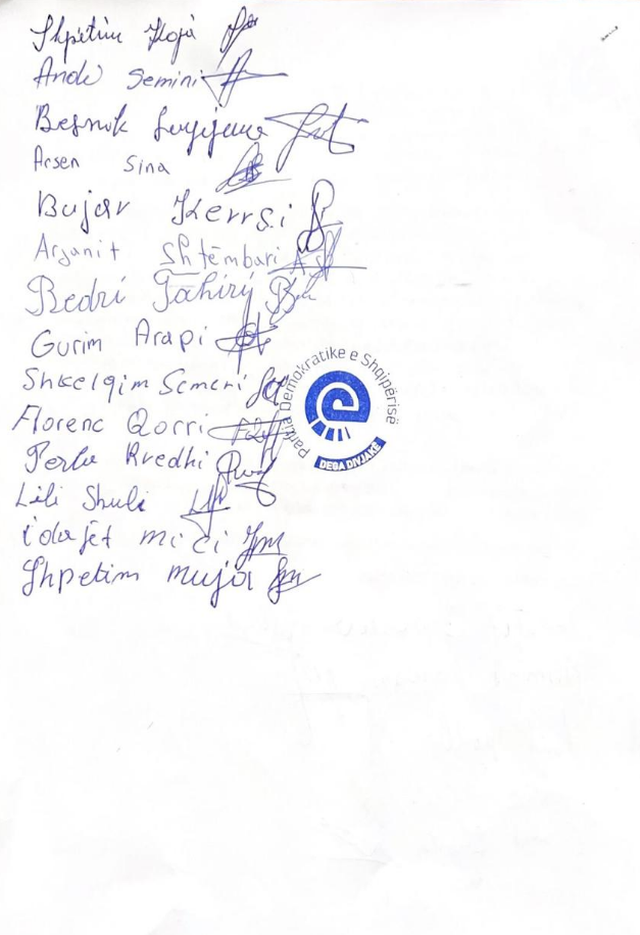 Shpëtim Koja
Andi Semini
Besnik
Arsen Sina
Bujar Kerrsi
Arjanit Shtëmbari
Bedri Tahiri
Gurim Arapi
Shkelqim Semeri
Florenc Qorri
Rredhi
Lili Shuli
idajet mici
Shpetim muja
Partia Demokratike e Shqipërisë
DEGA DIVJAKË